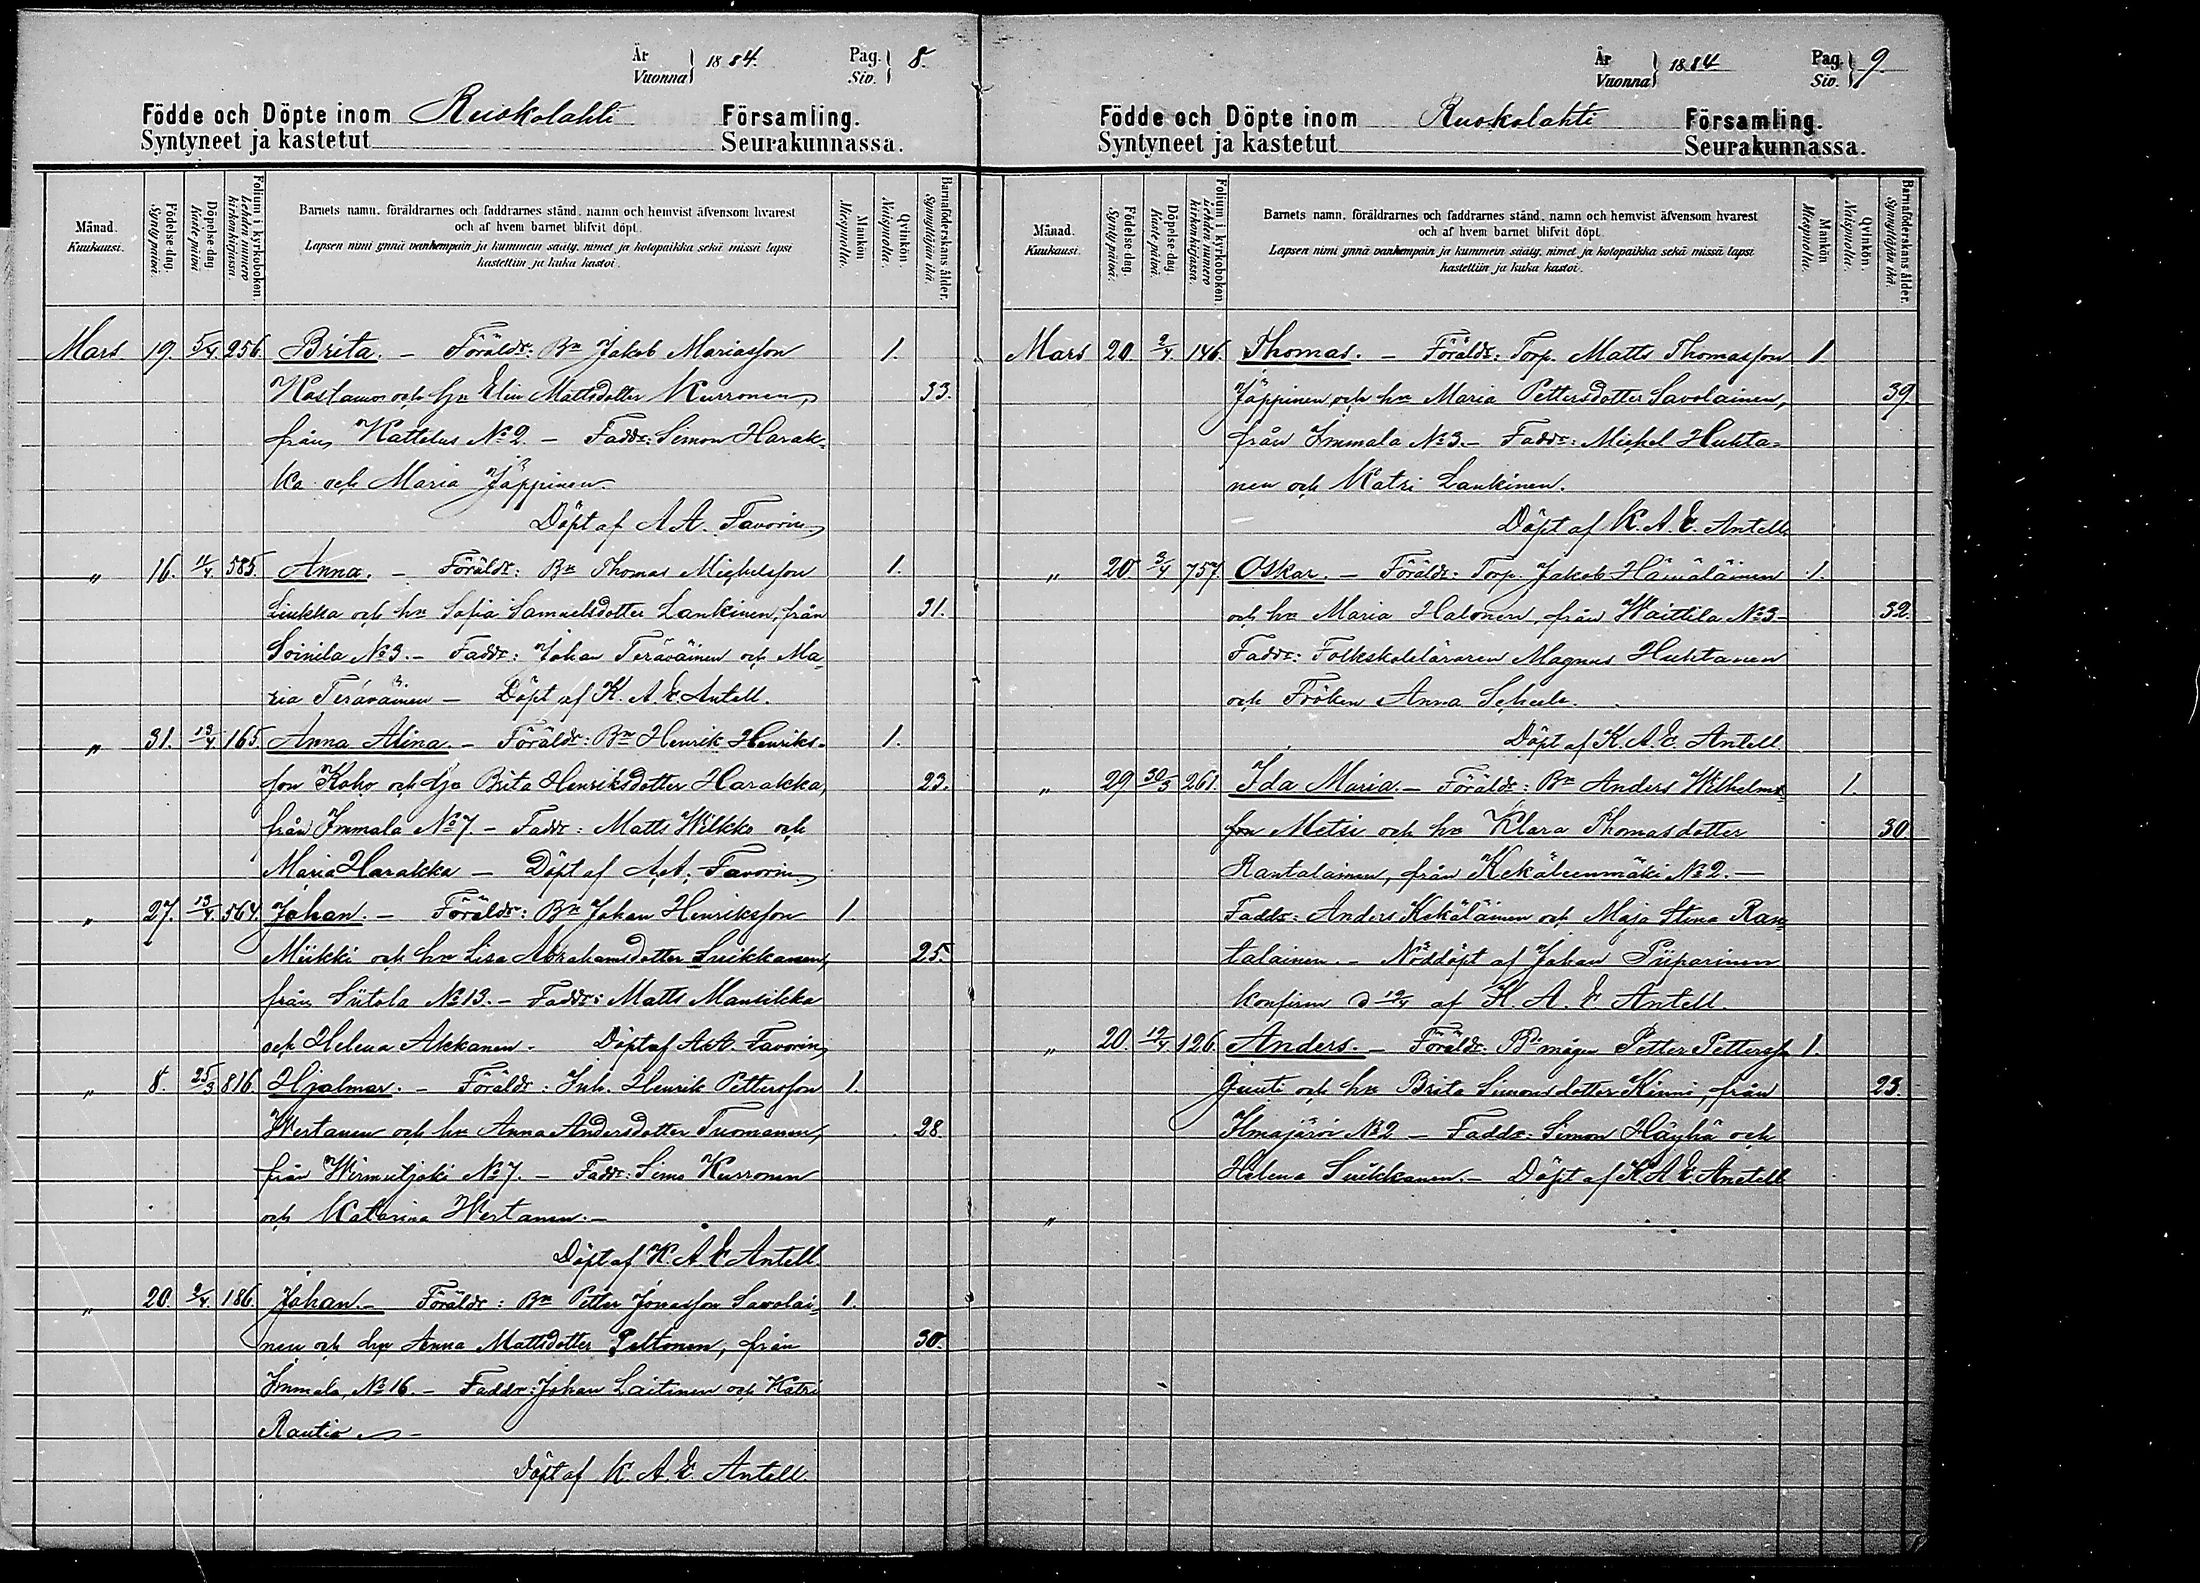 År
Vuonna } 1884. Pag. Siv. } 8.
Födde och Döpte inom Ruokolahti Församling.
Syntyneet ja kastetut Seurakunnassa.
Månad. Kuukausi. Födelse-dag. Syntypäivä. Döpelse-dag Kastepäivä. Folium i kyrkoboken. Lehden numero kirkonkirjassa. Barnets namn, föräldrarnes och faddrarnes stånd, namn och hemvist äfvensom hvarest Mankön Miespuolta. Qvinkön. Naispuolta. Barnaföderskans ålder. Synnyttäjän ikä.
och af hvem barnet blifvit döpt.
Lapsen nimi ynnä vanhempain ja kummein sääty, nimet ja kotopaikka sekä missä lapsi
kastettiin ja kuka kastoi.
Mars 19. 5/4 256. Brita. – Föräldr: Bn Jakob Mariasson 1.
Kastamo och hn Elin Mattsdotter Kurronen, 33.
från Kattelus No 2. – Faddr: Simon Harak-
ka och Maria Jäppinen.
Döpt af A A. Favorin
" 16. 11/4. 585. Anna. – Föräldr: Bn Thomas Michelsson 1.
Liukka och hn Sofia Samuelsdotter Lankinen, från 31.
Soinila No 3. – Faddr: Johan Teräväinen och Ma-
ria Teräväinen – Döpt af K. A. E. Antell.
" 31. 13/4 165. Anna Alina. – Föräldr: Bn Henrik Henriks- 1.
son Koho och hn Brita Henriksdotter Harakka, 23.
från Immala No 7. – Faddr: Matts Wilkko och
Maria Harakka – Döpt af A. A. Favorin
" 27. 13/4 564. Johan. – Föräldr: Bn Johan Henriksson 1.
Miikki och hn Lisa Abrahamsdotter Suikkanen, 25.
från Siitola No 13. – Faddr: Matts Mansikka
och Helena Akkanen. Döpt af A A. Favorin
" 8. 25/3 816. Hjalmar. – Föräldr: Inh. Henrik Pettersson 1.
Wertanen och hn Anna Andersdotter Tuomanen, 28.
från Wirmutjoki No 7. – Faddr: Simo Kurronen
och Katarina Wertanen. –
Döpt af K. A. E Antell.
" 20. 2/4. 186. Johan. – Föräldr: Bn Petter Jonasson Savolai- 1.
nen och hn Anna Mattsdotter Peltonen, från 30.
Immala, No 16. – Faddr: Johan Laitinen och Katri
Rautio –
Döpt af K. A. E. Antell
År
Vuonna } 1884 Pag. Siv. } 9.
Födde och Döpte inom Ruokolahti Församling.
Syntyneet ja kastetut Seurakunnassa.
Månad. Kuukausi. Födelse-dag. Syntypäivä. Döpelse-dag Kastepäivä. Folium i kyrkoboken. Lehden numero kirkonkirjassa. Barnets namn, föräldrarnes och faddrarnes stånd, namn och hemvist äfvensom hvarest Mankön Miespuolta. Qvinkön. Naispuolta. Barnaföderskans ålder. Synnyttäjän ikä.
och af hvem barnet blifvit döpt.
Lapsen nimi ynnä vanhempain ja kummein sääty, nimet ja kotopaikka sekä missä lapsi
kastettiin ja kuka kastoi.
Mars 20. 2/4 146. Thomas. – Föräldr: Torp. Matts Thomasson 1.
Jäppinen, och hn Maria Pettersdotter Savolainen, 39.
från Immala No 3. – Faddr: Michel Huhta-
nen och Katri Lankinen.
Döpt af K. A. E. Antell.
" 20 3/4 757. Oskar. – Föräldr: Torp. Jakob Hämäläinen 1.
och hn Maria Halonen, från Waittila No 3 – 32.
Faddr: Folkskoleläraren Magnus Huhtanen
och Fröken Anna Scheele.
Döpt af K. A. E. Antell.
" 29. 30/3 261. Ida Maria. – Föräldr: Bn Anders Wilhelms- 1.
son Metsi och hn Klara Thomasdotter 30.
Rantalainen, från Kekäleenmäki No 2. –
Faddr: Anders Kekäläinen och Maja Stina Ran-
talainen. – Nöddöpt af Johan Piiparinen
Konfirm d 19/4 af K. A. E Antell.
" 20. 19/4. 126. Anders. – Föräldr: Bdemågen Petter Pettersson 1.
Juuti och hn Brita Simonsdotter Kinni, från 23.
Ilmajärvi No 2 – Faddr: Simon Häyhä och
Helena Suikkanen. – Döpt af K A E Antell
"